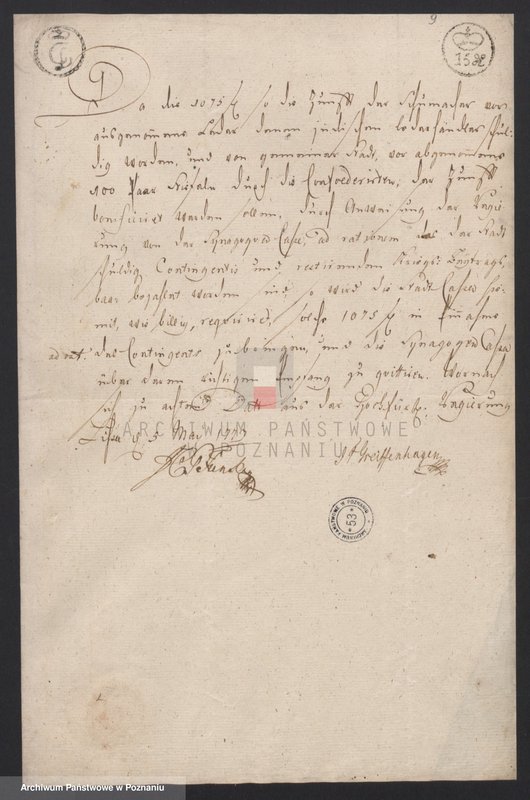 9
15 gl
Da die 1075 f so die Zunfft der Schumacher vor
ausgenommene Leder denen jüdischen Lederhändler schul-
dig worden, und von gemeiner Stadt, vor abgenommene
100 Paar Stiefeln durch die Confoederirten, der Zunfft
bonificiret werden sollen, durch Anweisung der Regie
rung von der Synagogen Cassa, ad rationem des der Stadt
schuldig Contingentis und restirenden Kriegs-Beytrags
baar bezahlet worden sind, so wird die Stadt Cassa so-
mit, wie billig, requiriret, solche 1075 f in Einnahme
ad rat: des Contingents zu bringen, und die Synagogen Cassa
über deren richtigen Empfang zu quittiren. Wornach
sich zu achten. Dat: aus der Hochfürstl: Regierung
Lissa d 5 May 1773
JH Greiffenhagen
ARCHIWUM PAŃSTWOWE
W POZNANIU
ARCHIWUM PAŃSTWOWE W POZNANIU
* 53 *
Archiwum Państwowe w Poznaniu